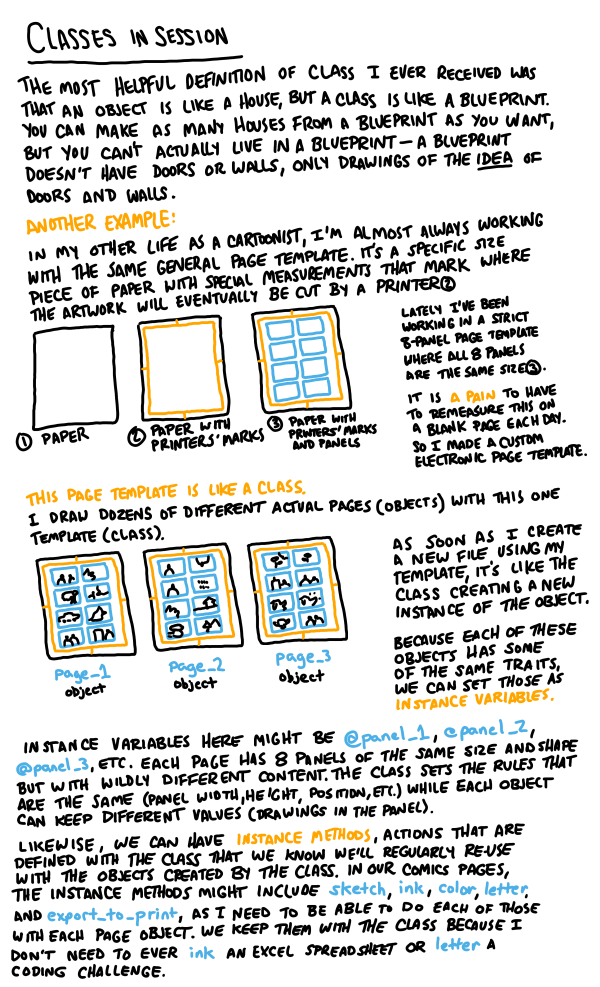 CLASSES IN SESSION
THE MOST HELPFUL DEFINITION OF CLASS I EVER RECEIVED WAS
THAT AN OBJECT IS LIKE A HOUSE, BUT A CLASS IS LIKE A BLUEPRINT.
YOU CAN MAKE AS MANY HOUSES FROM A BLUEPRINT AS YOU WANT,
BUT YOU CAN'T ACTUALLY LIVE IN A BLUEPRINT — A BLUEPRINT
DOESN'T HAVE DOORS OR WALLS, ONLY DRAWINGS OF THE IDEA OF
DOORS AND WALLS.
ANOTHER EXAMPLE:
IN MY OTHER LIFE AS A CARTOONIST, I'M ALMOST ALWAYS WORKING
WITH THE SAME GENERAL PAGE TEMPLATE. IT'S A SPECIFIC SIZE
PIECE OF PAPER WITH SPECIAL MEASUREMENTS THAT MARK WHERE
THE ARTWORK WILL EVENTUALLY BE CUT BY A PRINTER②
① PAPER
② PAPER WITH
PRINTERS' MARKS
③ PAPER WITH
PRINTERS' MARKS
AND PANELS
LATELY I'VE BEEN
WORKING IN A STRICT
8-PANEL PAGE TEMPLATE
WHERE ALL 8 PANELS
ARE THE SAME SIZE③.
IT IS A PAIN TO HAVE
TO REMEASURE THIS ON
A BLANK PAGE EACH DAY.
SO I MADE A CUSTOM
ELECTRONIC PAGE TEMPLATE.
THIS PAGE TEMPLATE IS LIKE A CLASS.
I DRAW DOZENS OF DIFFERENT ACTUAL PAGES (OBJECTS) WITH THIS ONE
TEMPLATE (CLASS).
page_1
object
page_2
object
page_3
object
AS SOON AS I CREATE
A NEW FILE USING MY
TEMPLATE, IT'S LIKE THE
CLASS CREATING A NEW
INSTANCE OF THE OBJECT.
BECAUSE EACH OF THESE
OBJECTS HAS SOME
OF THE SAME TRAITS,
WE CAN SET THOSE AS
INSTANCE VARIABLES.
INSTANCE VARIABLES HERE MIGHT BE @panel_1, @panel_2,
@panel_3, ETC. EACH PAGE HAS 8 PANELS OF THE SAME SIZE AND SHAPE
BUT WITH WILDLY DIFFERENT CONTENT. THE CLASS SETS THE RULES THAT
ARE THE SAME (PANEL WIDTH, HEIGHT, POSITION, ETC.) WHILE EACH OBJECT
CAN KEEP DIFFERENT VALUES (DRAWINGS IN THE PANEL).
LIKEWISE, WE CAN HAVE INSTANCE METHODS, ACTIONS THAT ARE
DEFINED WITH THE CLASS THAT WE KNOW WE'LL REGULARLY RE-USE
WITH THE OBJECTS CREATED BY THE CLASS. IN OUR COMICS PAGES,
THE INSTANCE METHODS MIGHT INCLUDE sketch, ink, color, letter,
AND export_to_print, AS I NEED TO BE ABLE TO DO EACH OF THOSE
WITH EACH PAGE OBJECT. WE KEEP THEM WITH THE CLASS BECAUSE I
DON'T NEED TO EVER ink AN EXCEL SPREADSHEET OR letter A
CODING CHALLENGE.